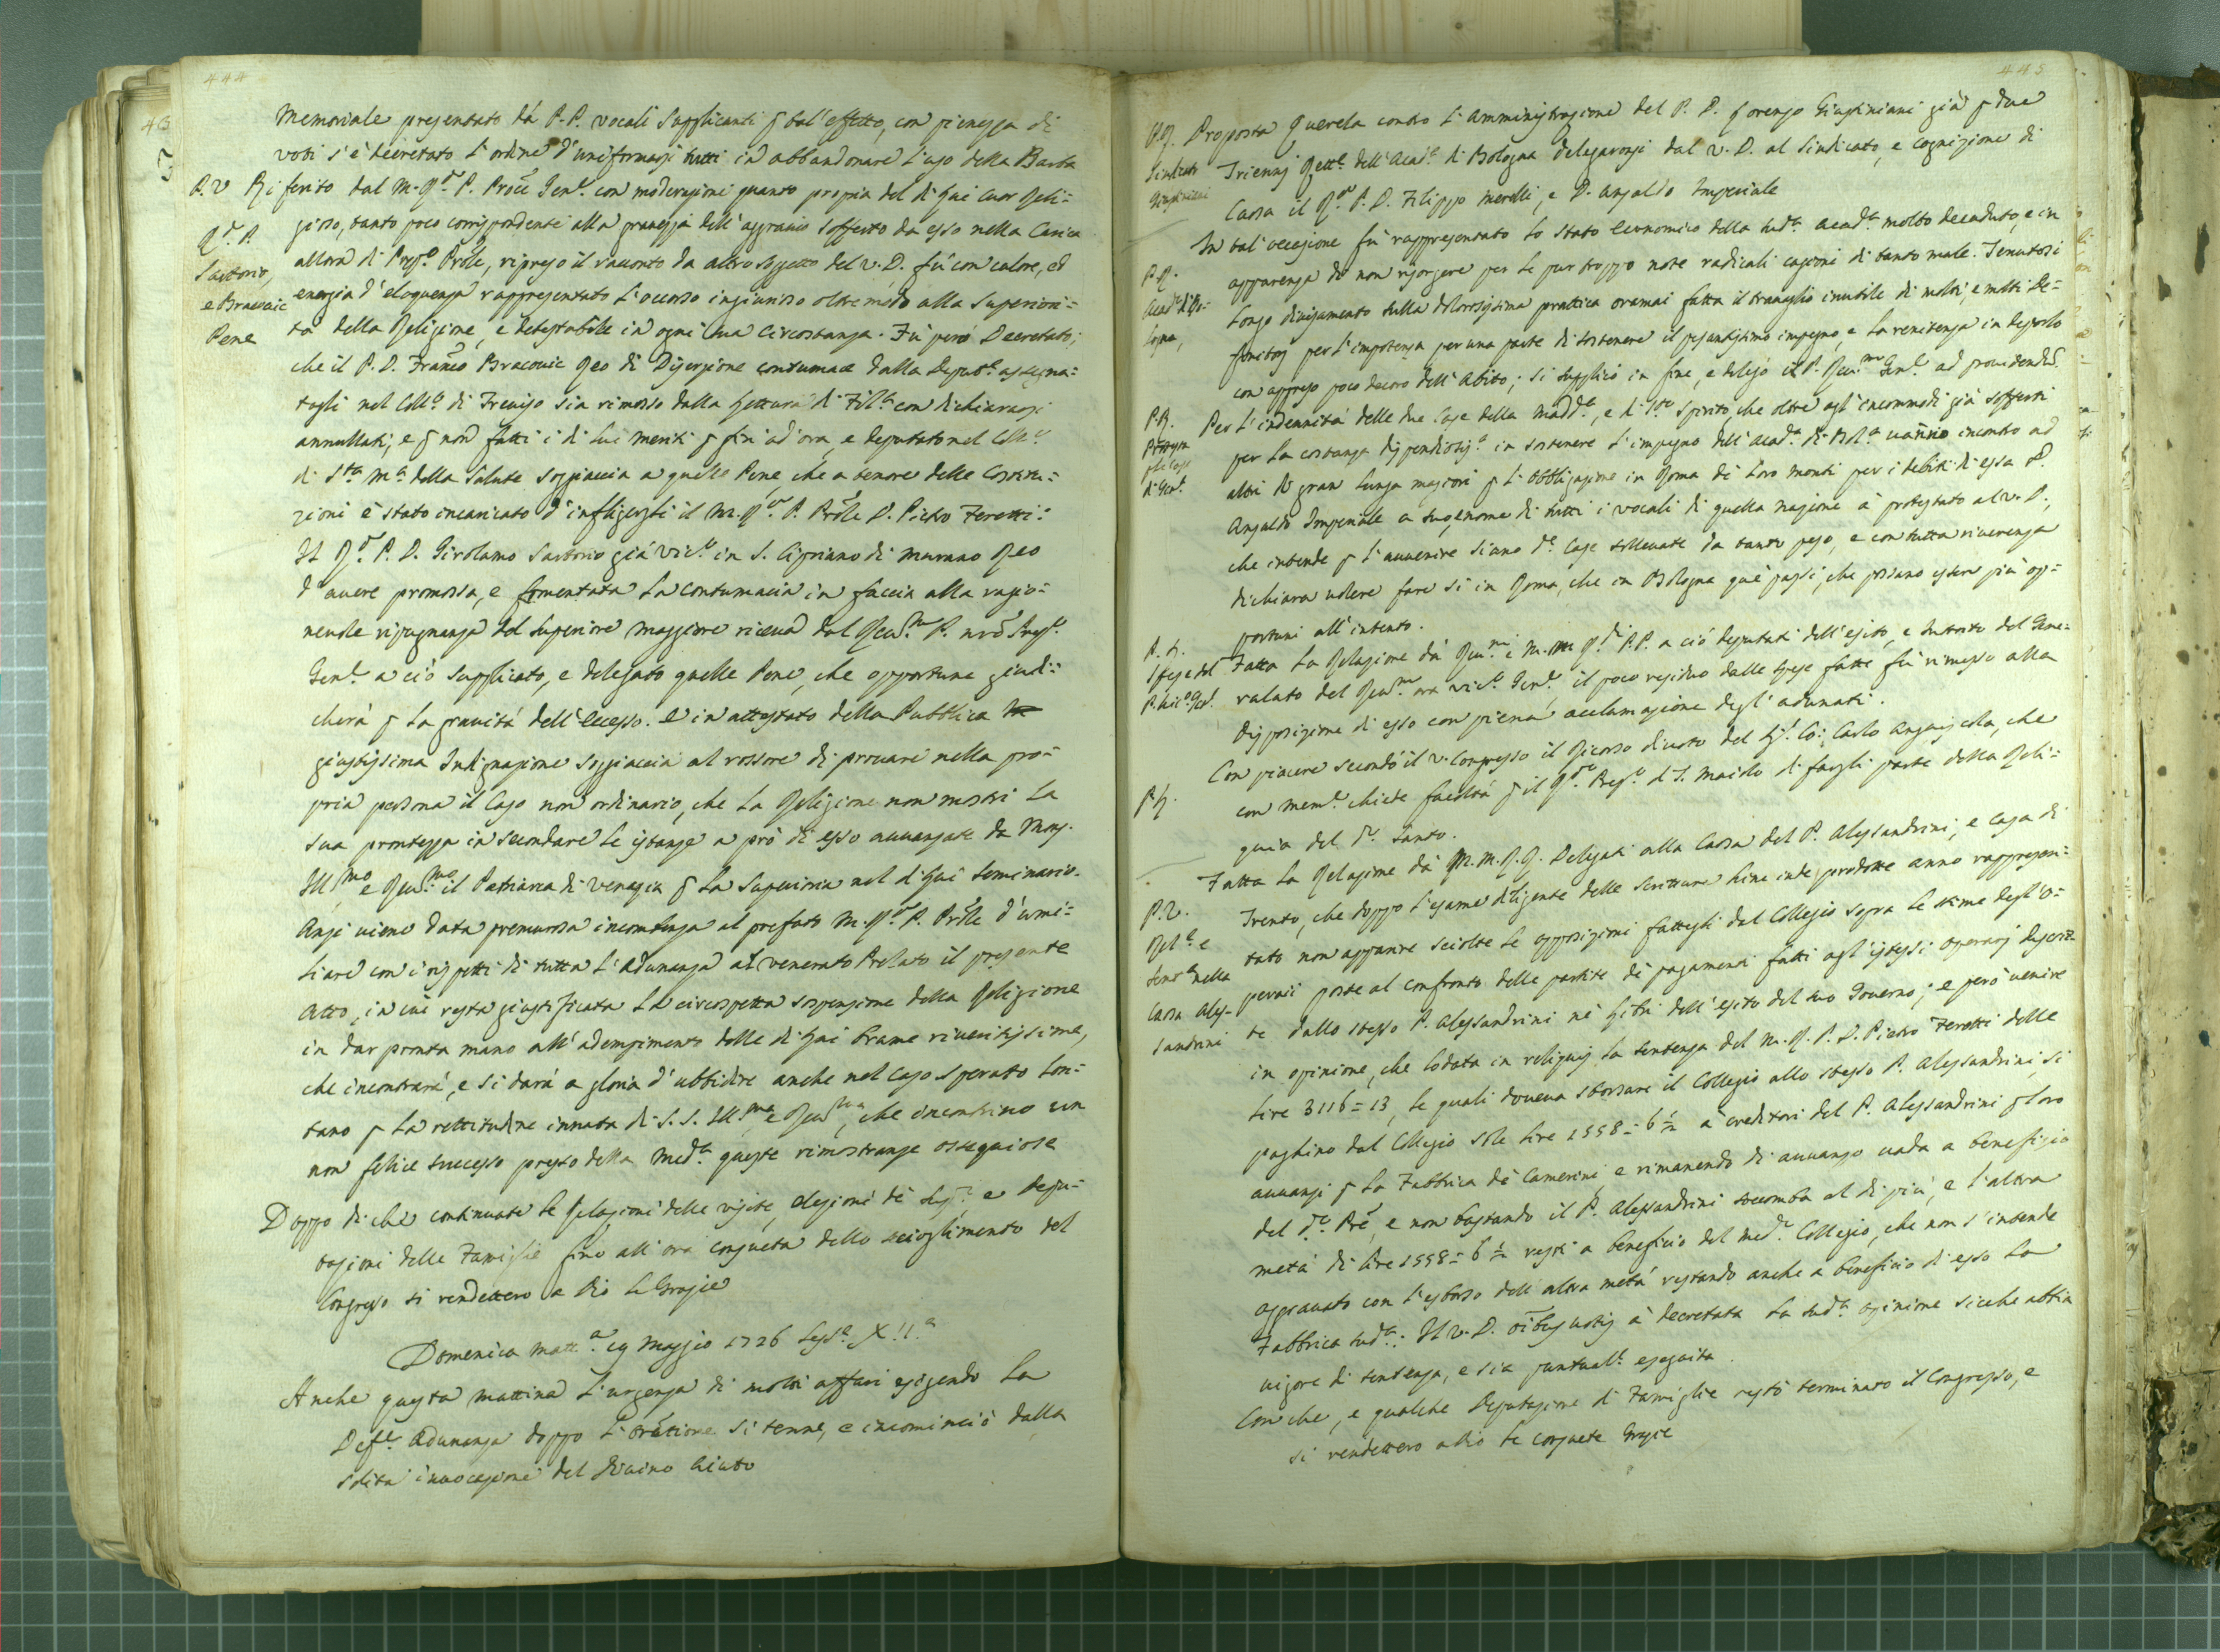 444
Memoriale presentato dà P.P. vocali supplicanti ꝑ tal'effetto, con pienezza di
voti s'è decretato l'ordine d'uniformarsi tutti in abbandonare l'uso della Barba
P.V Riferito dal M.Rdo P. Procre Genle con moderazioni quanto propria del di Lui Cuor Reli-
gioso, tanto poco corrispondenti alla gravezza dell'aggravio sofferto da esso nella Carica
Rdo P.
Sartorio,
e Bracovic
Pene
allora di Prole, ripreso il racconto da altro Soggetto del V.D. fù con calore, ed
energia d'eloquenza rappresentato l'occorso ingiurioso oltre modo alla Superiori-
tà della Religione, e detestabile in ogni sua Circostanza. Fù però Decretato;
che il P.D. Franco Bracovic Reo di Diserzione contumace dalla Deputne assegna-
tagli nel Collo di Treviso sia rimosso dalla Lettura di Filia con dichiararsi
annullati, e ꝑ non fatti i di lui meriti ꝑ fin ad'ora, e deputato nel Collo
di Sta Ma della Salute soggiaccia a quelle Pene, che a tenore delle Costitu-
zioni è stato incaricato d'infligergli il M.Rdo P. Prole D. Pietro Feretti:
Il Rdo P.D. Girolamo Sartorio già Vice in S. Cipriano di Murano Reo
d'avere promossa, e fomentata la contumacia in faccia alla ragio-
nevole ripugnanza del Superiore Maggiore riceva dal Revmo P. nro Prepo
Genle a ciò supplicato, e delegato quelle Pene, che opportune giudi-
cherà ꝑ la gravità dell'Eccesso. E in attestato della Pubblica
giustissima Indignazione soggiaccia al rossore di provare nella pro-
pria persona il Caso non ordinario, che la Religione non mostri la
sua prontezza in secondare le istanze a prò di esso avvanzate da Mons.
Illmo e Revmo il Patriarca di Venezia ꝑ la Superioria nel di Lui Seminario.
Anzi viene data premurosa incombenza al prefato M.Rdo P. Prole d'umi-
liare con i rispetti di tutta l'Adunanza al venerato Prelato il presente
Atto, in cui resta giustificata la circospetta sospensione della Religione
in dar pronta mano all'adempimento delle di Lui brame riveritissime,
che incontrarà, e si darà a gloria d'ubbidire anche nel Caso sperato lon-
tano ꝑ la rettitudine innata di S.S. Illma e Revma, che incontrino un
non felice successo presso della Meda queste rimostranze ossequiose
Doppo di che continuate le Relazioni delle visite, elezioni dè Supi e depu-
tazioni delle Famiglie fino all'ora consueta dello scioglimento del
Congresso si rendettero a Dio le Grazie
Domenica Matta 19 Maggio 1726 Sessa XIIa
Anche questa mattina l'urgenza di molti affari esigendo la
Defe Adunanza doppo l'orazione si tenne, e incominciò dalla
solita invocazione del Divino Aiuto
445
P.P. Proposta Querela contro l'Amministrazione del P.D. Lorenzo Giustiniani già ꝑ due
Sindicato
Giustiniani
Triennj Rette dell'Acade di Bologna delegaronsi dal V.D. al Sindicato, e cognizione di
Causa il Rdo P.D. Filippo Merelli, e D. Ansaldo Imperiale
In tal'occasione fù rappresentato lo stato Economico della suda Acada molto decaduto, e in
P.P.
Acada di Bo-
logna,
apparenza di non risorgere per le pur troppo note radicali cagioni di tanto male. Tenutosi
longo divisamento sulla dolorosissima prattica oramai fatta il travaglio inutile di molti, e molti De-
finitorj per l'impotenza per una parte di sostenere il pesantissimo impegno, e la renitenza in deporlo
con appreso poco decoro dell'Abito; si supplicò in fine, e delegò il P. Revmo Genle ad providendum
Per l'indennità delle due Case della Madda, e di Sto Spirito, che oltre agl'incommodi già sofferti
di Genа
per la costanza dispendiosisa in sostenere l'impegno dell'Acada di Bola vanno incontro ad
altri di gran lunga magiori ꝑ l'obbligazione in Roma dè loro monti per i debiti di essa il P.
Ansaldo Imperiale a suo, e nome di tutti i vocali di quella nazione à protestato al V.D.,
che intende ꝑ l'avvenire siano de Case sollevate da tanto peso, e con tutta riverenza
dichiara volere fare sì in Roma, che in Bologna que' passi, che possano esser più op-
portuni all'intento.
Spese del
P. Vico Genl
Fatta la Relazione dà Revmi e M.M.Rdi P.P. a ciò deputati dell'esito, e Introito del Gene-
ralato del Revmo ora Vico Genle il poco residuo dalle spese fatte fù rimesso alla
Disposizione di esso con piena acclamazione degl'adunati.
Con piacere secondò il V. Congresso il Ricorso divoto del Co: Carlo Anguiscola, che
con Meme chiede facoltà ꝑ il Rdo Prepo di S. Maiolo di fargli parte della Reli-
quia del do Santo.
Fatta la Relazione dà M.M.R.R. Delegati alla Causa del P. Alessandrini, e Casa di
P.V.
Relne e
Sentza nella
Causa Ales-
sandrini
Trento, che doppo l'esame diligente delle scritture hinc inde prodotte anno rappresen-
tato non apparire sciolte le opposizioni fattegli dal Collegio sopra le stime degl'O-
peraii poste al confronto delle partite dè pagamenti fatti agl'istessi operarj descrit-
te dallo stesso P. Alessandrini nè Libri dell'esito del suo Governo; e però venire
in opinione, che lodata in reliquis la sentenza del M.R.P.D. Pietro Feretti delle
lire 3116=13, le quali doveva sborsare il Collegio allo stesso P. Alessandrini, si
paghino dal Collegio sole lire 1558=6½ à creditori del P. Alessandrini ꝑ loro
avvanzi ꝑ la Fabbrica dè Camerini, e rimanendo di avvanzo vada a benefizio
del do Pre, e non bastando il P. Alessandrini soccomba al di più, e l'altra
metà di lire 1558=6½ resti a beneficio del medo Collegio, che non s'intende
aggravato con l'esborso dell'altra metà restando anche a beneficio di esso la
Fabbrica suda: Il V.D. oibus votis à decretata la suda opinione sicche abbia
vigore di sentenza, e sia puntuale eseguita.
Con che, e qualche Deputazione di Famiglie restò terminato il Congresso, e
si rendettero a Dio le consuete Grazie